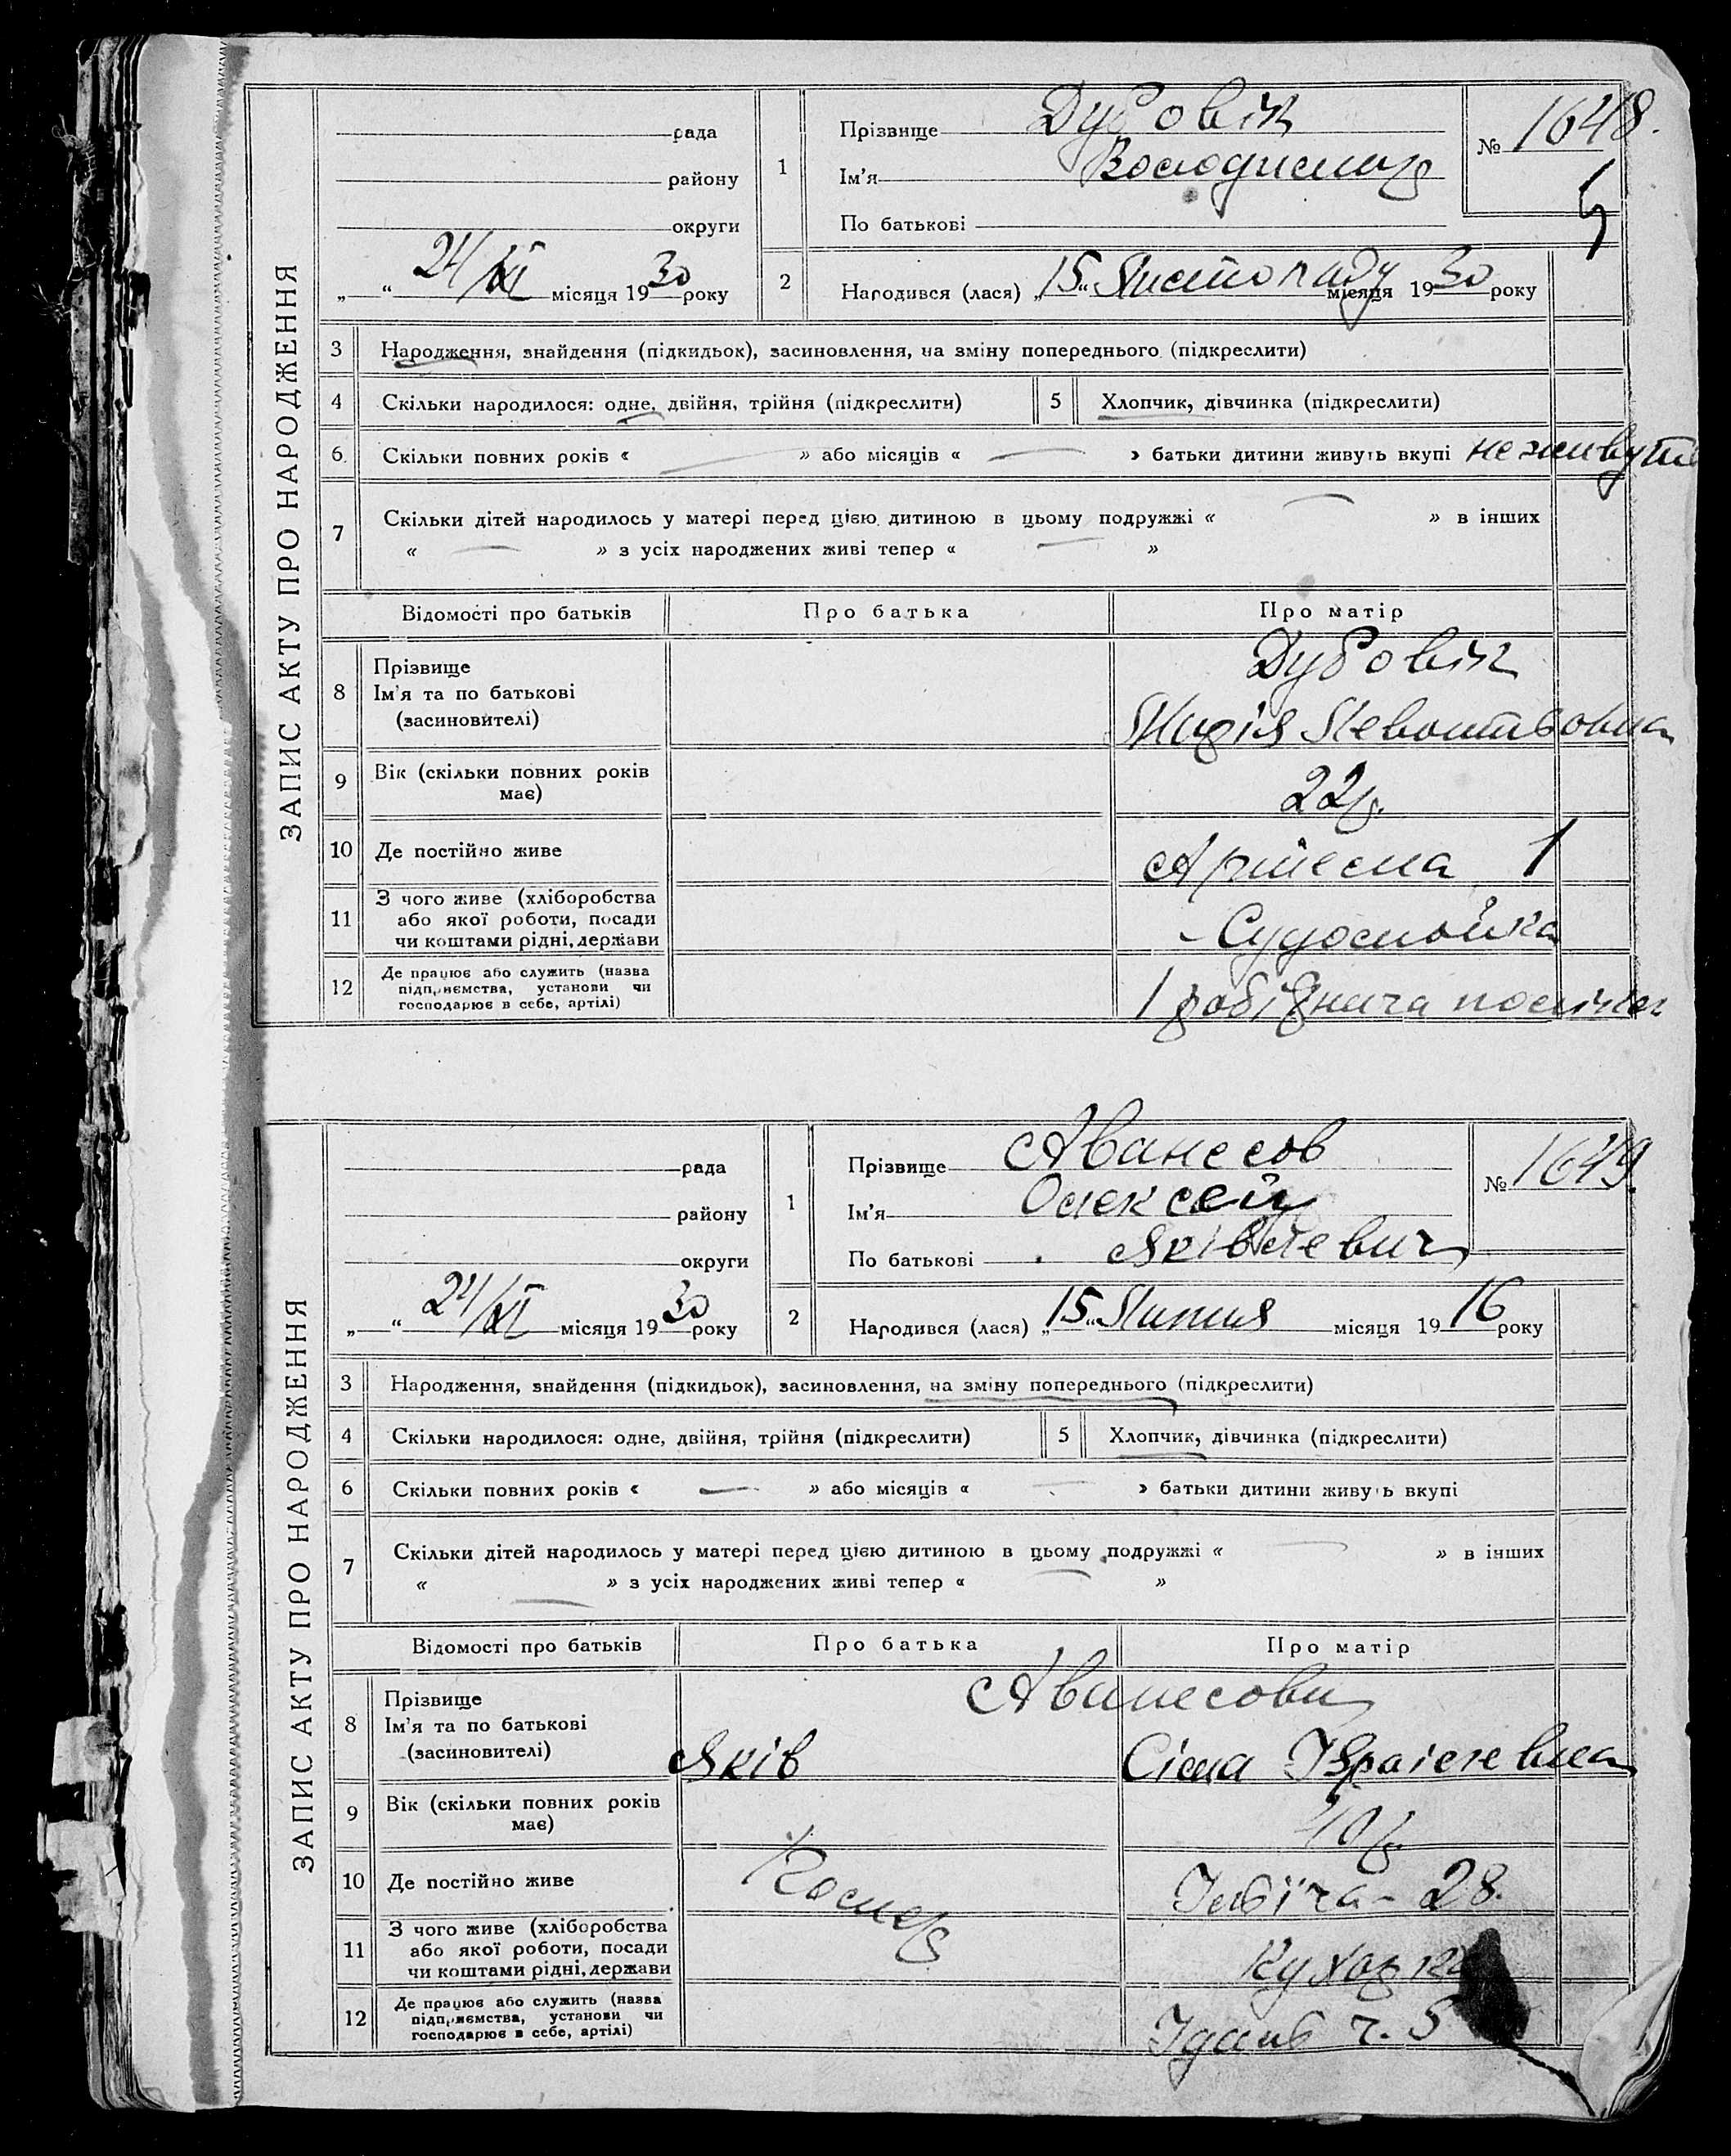 ЗАПИС АКТУ ПРО НАРОДЖЕННЯ
рада
району
округи
„ “ 24/XI місяця 1930 року
1 Прізвище Дубовік
Ім'я Володимир
По батькові
№ 1648.
2 Народився (лася) „15“ Листопаду місяця 1930 року
3 Народження, знайдення (підкидьок), засиновлення, на зміну попереднього (підкреслити)
4 Скільки народилося: одне, двійня, трійня (підкреслити) 5 Хлопчик, дівчинка (підкреслити)
6 Скільки повних років « — » або місяців « — » батьки дитини живуть вкупі не живуть
7 Скільки дітей народилось у матері перед цією дитиною в цьому подружжі « — » в інших
« — » з усіх народжених живі тепер « — »
Відомості про батьків Про батька Про матір
8 Прізвище Дубовік
Ім'я та по батькові
(засиновителі) Лидія
9 Вік (скільки повних років має) 22 р.
10 Де постійно живе Артема 1
11 З чого живе (хліборобства або якої роботи, посади чи коштами рідні, держави Судомойка
12 Де працює або служить (назва підприємства, установи чи господарює в себе, артілі) 1 робітнича
ЗАПИС АКТУ ПРО НАРОДЖЕННЯ
рада
району
округи
„ “ 24/XI місяця 1930 року
1 Прізвище Аванесов
Ім'я Олексей
По батькові Яківлевич
№ 1649.
2 Народився (лася) „15“ Липня місяця 1916 року
3 Народження, знайдення (підкидьок), засиновлення, на зміну попереднього (підкреслити)
4 Скільки народилося: одне, двійня, трійня (підкреслити) 5 Хлопчик, дівчинка (підкреслити)
6 Скільки повних років « — » або місяців « — » батьки дитини живуть вкупі
7 Скільки дітей народилось у матері перед цією дитиною в цьому подружжі « — » в інших
« — » з усіх народжених живі тепер « — »
Відомості про батьків Про батька Про матір
8 Прізвище Аванесови
Ім'я та по батькові
(засиновителі) Яків Сіма Ізраілевна
9 Вік (скільки повних років має) 40 р.
10 Де постійно живе Помер 28.
11 З чого живе (хліборобства або якої роботи, посади чи коштами рідні, держави Куховарка
12 Де працює або служить (назва підприємства, установи чи господарює в себе, артілі) Їдальня ч. 5